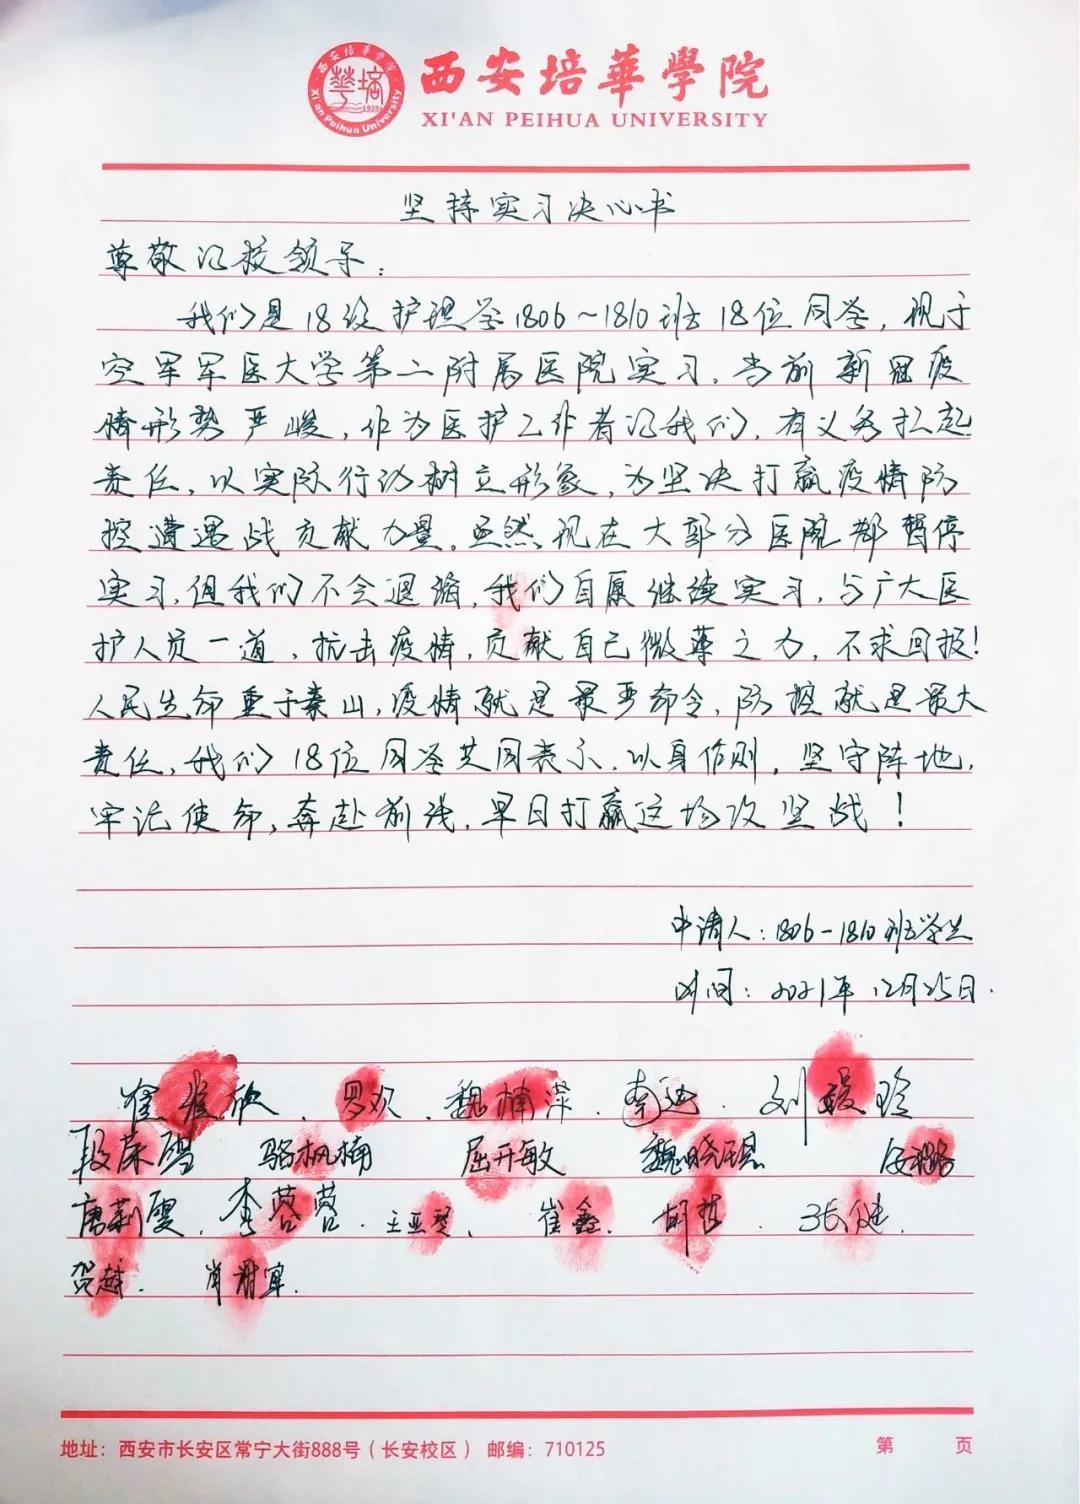 西安培華學院
XI'AN PEIHUA UNIVERSITY
西安培華學院
Xi'an Peihua University
華培
1928
坚持实习决心书
尊敬的校领导：
我们是18级护理学1806～1810班18位同学，现于
空军军医大学第二附属医院实习。当前新冠疫
情形势严峻，作为医护工作者的我们，有义务扛起
责任，以实际行动树立形象，为坚决打赢疫情防
控遭遇战贡献力量。虽然现在大部分医院都暂停
实习，但我们不会退缩，我们自愿继续实习，与广大医
护人员一道，抗击疫情，贡献自己微薄之力，不求回报！
人民生命重于泰山，疫情就是最严命令，防控就是最大
责任，我们18位同学共同表示，以身作则，坚守阵地，
牢记使命，奔赴前线，早日打赢这场攻坚战！
申请人：1806-1810班学生
时间：2021年12月25日.
罗欢 . 魏楠 . 南 . 刘媛玲
段荣雪 骆枫楠 屈开敏 魏晓 璐
唐莉雯 . 李蓉蓉 . 王亚琴 . 崔鑫 . 胡哲 . 张健 .
贺越 . 肖湘宜 .
地址：西安市长安区常宁大街888号（长安校区） 邮编：710125 第 页